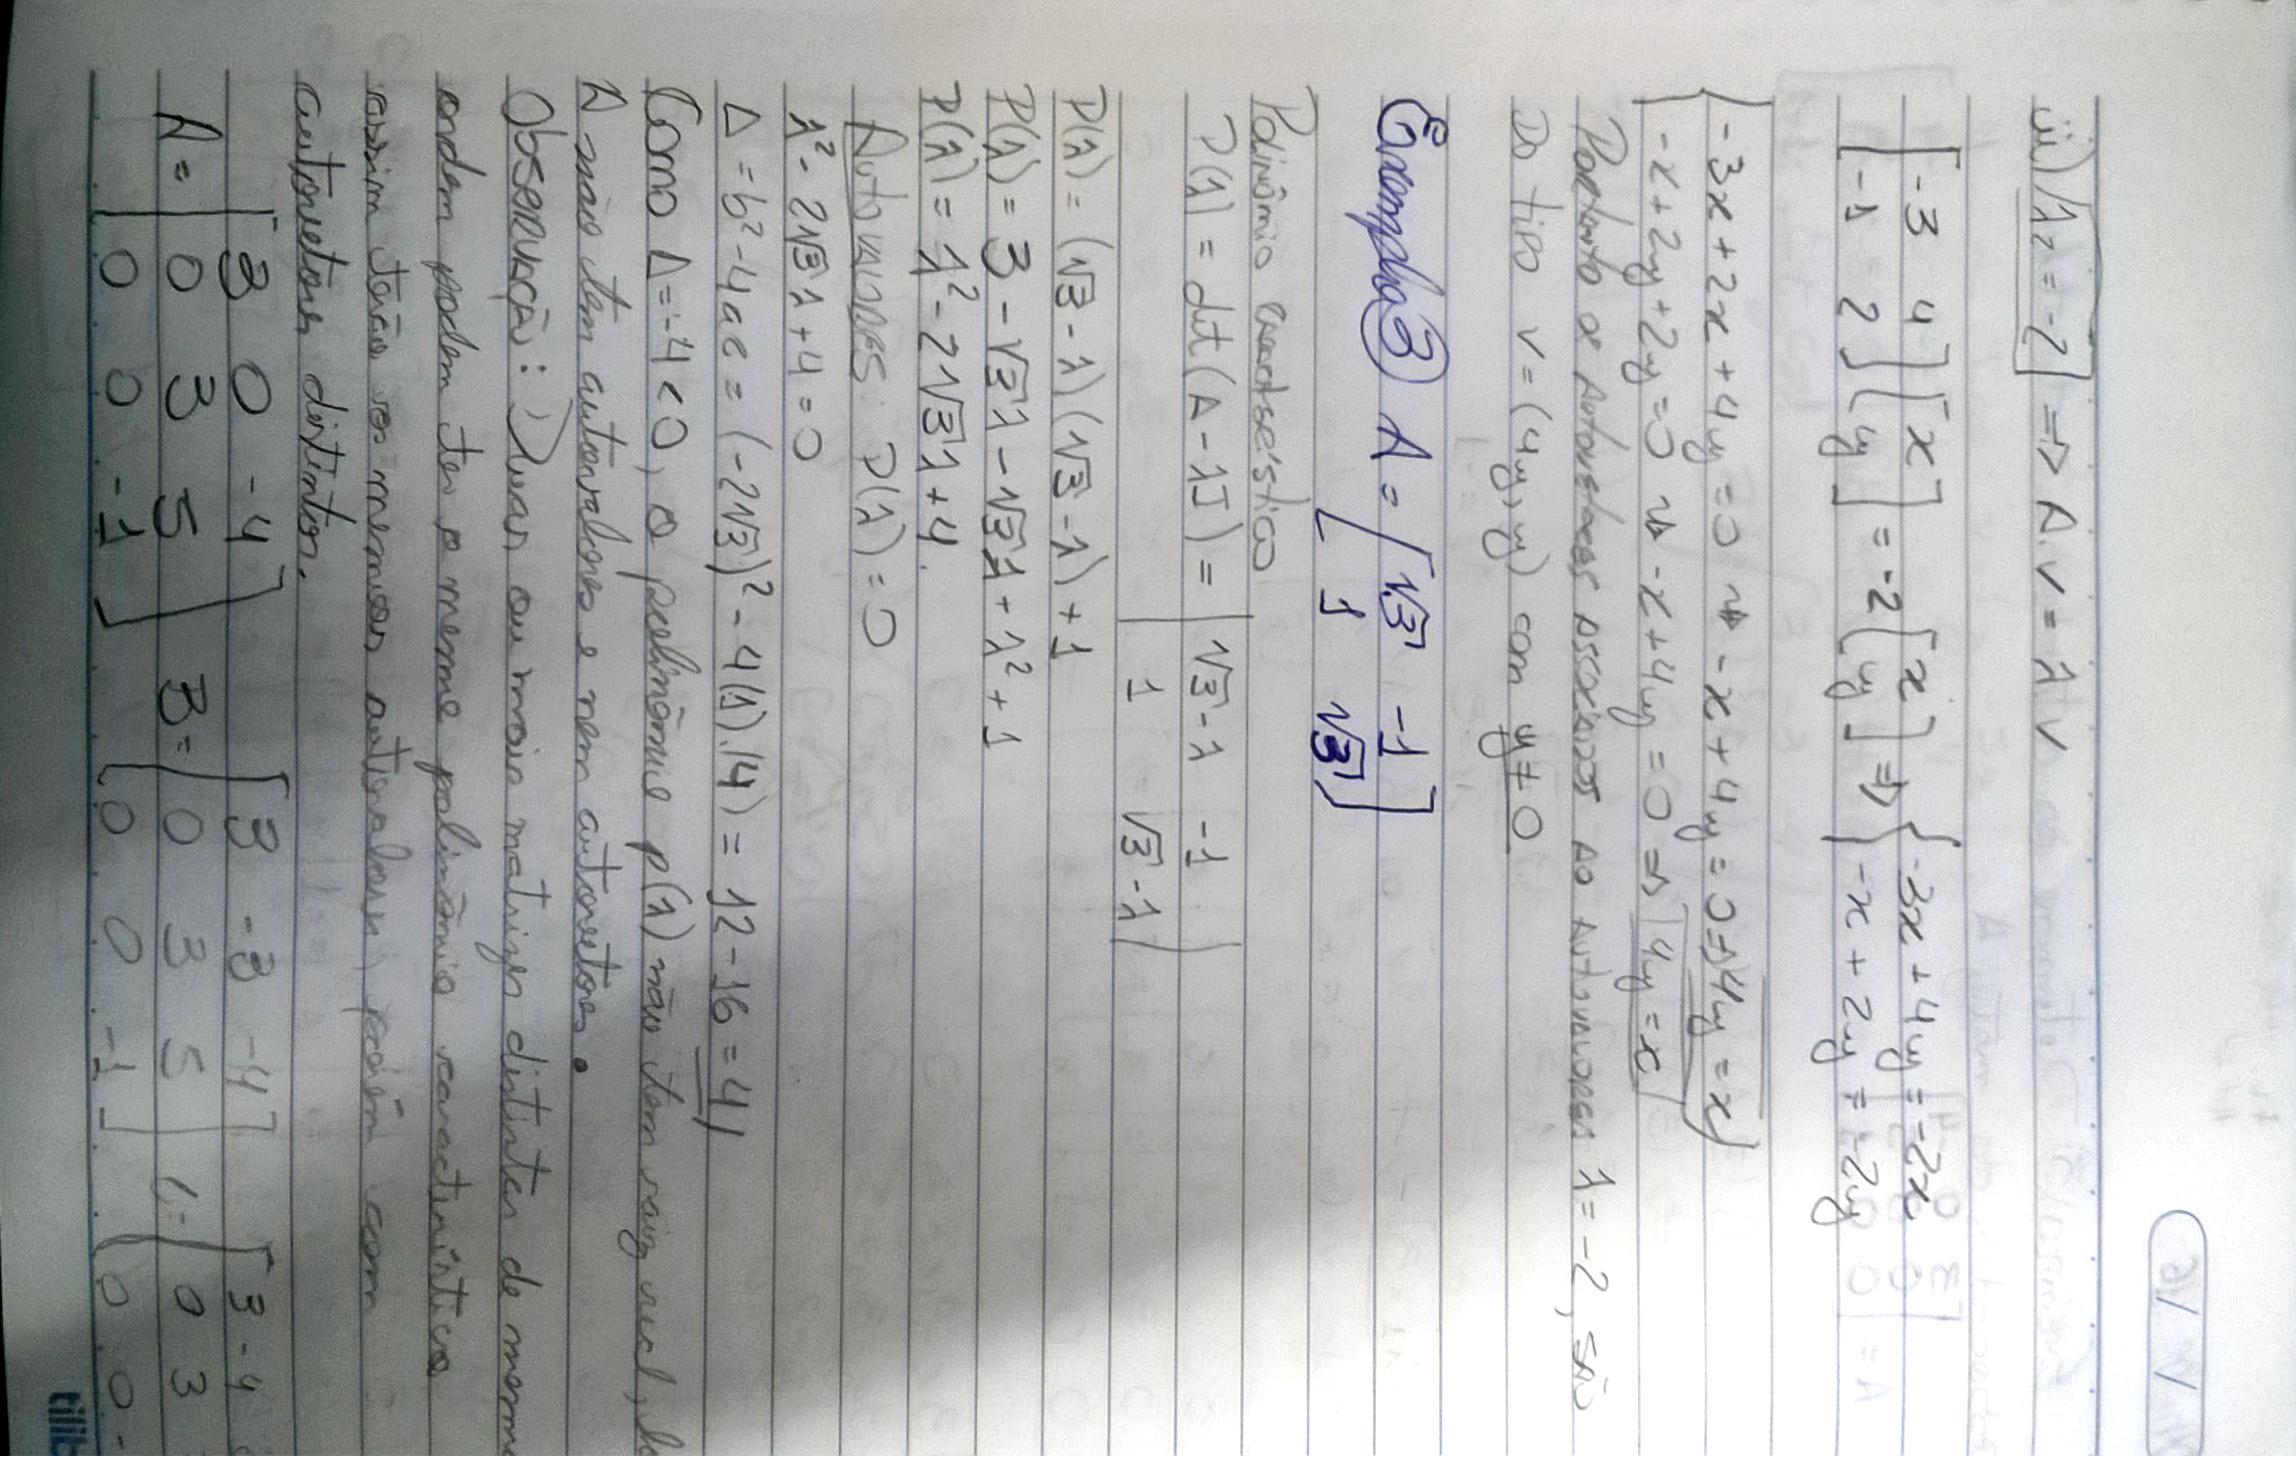 ii) λ2 = -2 => A.v = λ.v
[-3 4; -1 2] [x; y] = -2 [x; y] => { -3x + 4y = -2x
-x + 2y = -2y
{ -3x + 2x + 4y = 0 → -x + 4y = 0 => 4y = x
-x + 2y + 2y = 0 → -x + 4y = 0 => 4y = x
Portanto os autovetores associados ao autovalores λ = -2, são
do tipo v = (4y, y) com y ≠ 0
Exemplo 3 A = [√3 -1; 1 √3]
Polinômio
P(λ) = det(A - λI) = | √3 - λ -1 |
| 1 √3 - λ |
P(λ) = (√3 - λ)(√3 - λ) + 1
P(λ) = 3 - √3λ - √3λ + λ² + 1
P(λ) = λ² - 2√3λ + 4.
Autovalores: P(λ) = 0
λ² - 2√3λ + 4 = 0
Δ = b² - 4ac = (-2√3)² - 4(1).(4) = 12 - 16 = 4
Como Δ = -4 < 0, o polinômio p(λ) não tem raiz real, lo
A não tem autovalores e nem autovetores.
Observação: Duas ou mais matrizes distintas de mesma
ordem podem ter o mesmo polinômio característico
assim terão os mesmos autovalores, porém com
autovetores distintos.
A = [3 0 -4; 0 3 5; 0 0 -1] B = [3 -3 -4; 0 3 5; 0 0 -1] C = [3 -4; 0 3; 0 0 -
tilib